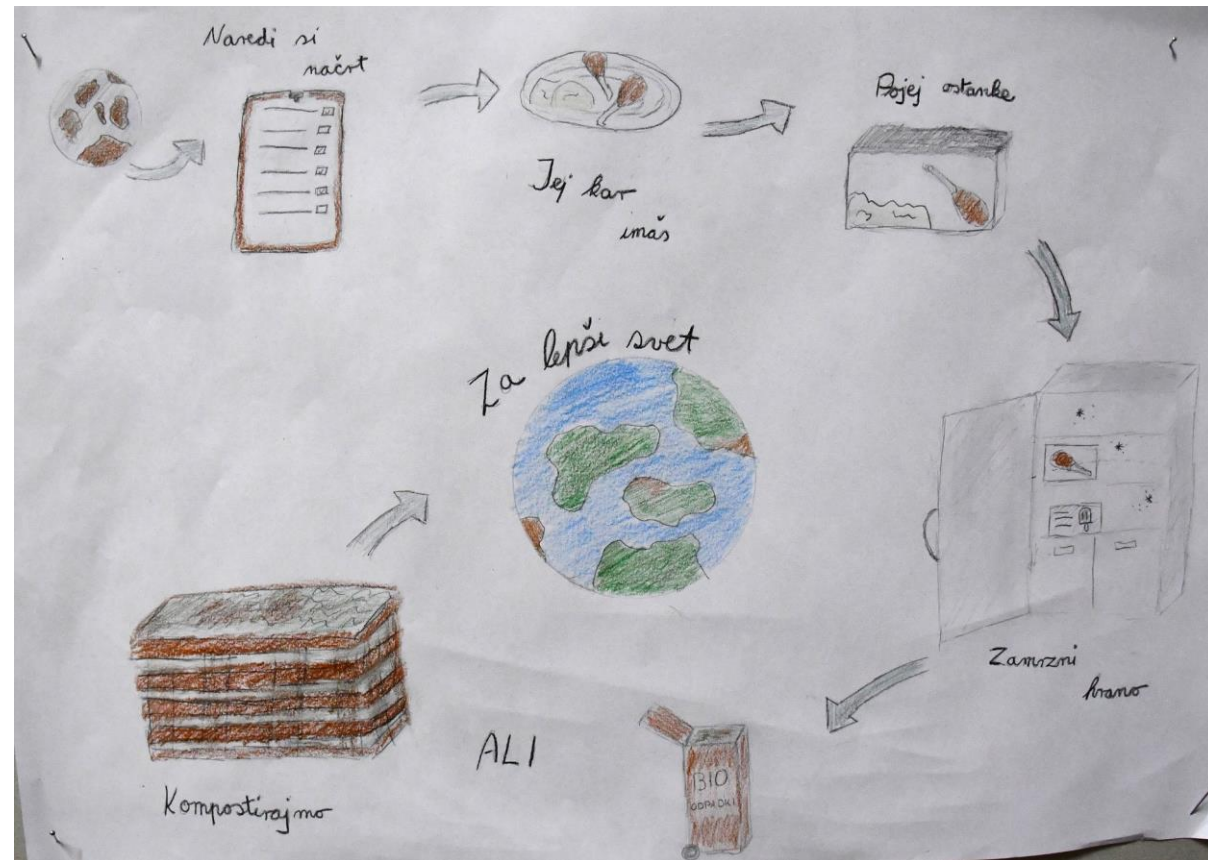 Naredi si
načrt
Jej kar
imaš
Pojej ostanke
Za lepši svet
Zamrzni
hrano
BIO
ODPADKI
ALI
Kompostirajmo